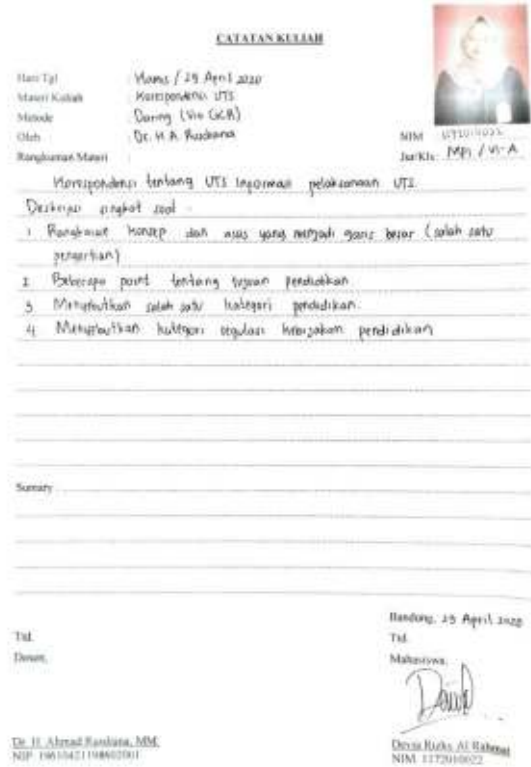 CATATAN KULIAH
Hari/Tgl : Kamis / 23 April 2020
Materi Kuliah : Korespondensi UTS
Metode : Daring (Via GCR)
Oleh : Dr. H. A. Rusdiana
NIM 1172010022
Rangkuman Materi :
Jur/Kls: MPI / VI-A
Korespondensi tentang UTS Informasi pelaksanaan UTS.
Deskripsi singkat soal :
1 Rangkaian konsep dan asas yang menjadi garis besar (salah satu
pengertian)
2 Beberapa point tentang tujuan pendidikan
3 Menyebutkan salah satu kategori pendidikan.
4 Menyebutkan kategori regulasi kebijakan pendidikan
Sumary
Bandung, 23 April 2020
Ttd.
Ttd.
Dosen,
Mahasiswa,
Dr. H. Ahmad Rusdiana, MM.
NIP. 196104211986021001
Devia Rizka Al Rahmat
NIM. 1172010022